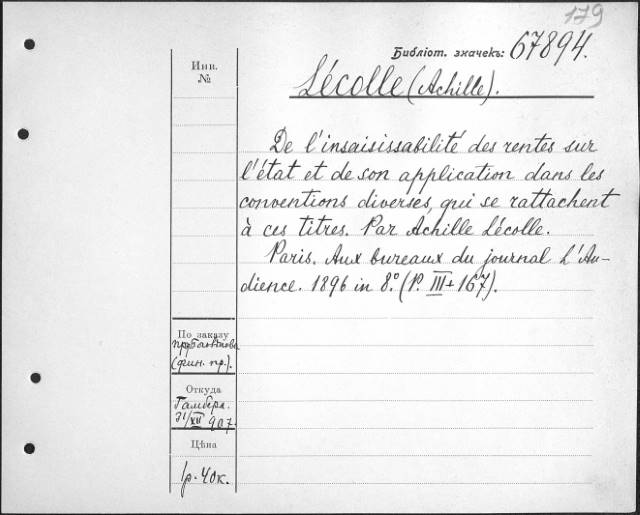 179
Библiот. значекъ: 67894.
Инв.
№
Lécolle (Achille).
De l'insaisissabilité des rentes sur
l'état et de son application dans les
conventions diverses, qui se rattachent
à ces titres. Par Achille Lécolle.
Paris. Aux bureaux du journal L'Au-
dience. 1896 in 8.° (P. III + 167).
По заказу
(фин. пр.).
Откуда
31/XII 907.
Цѣна
1р. 40к.